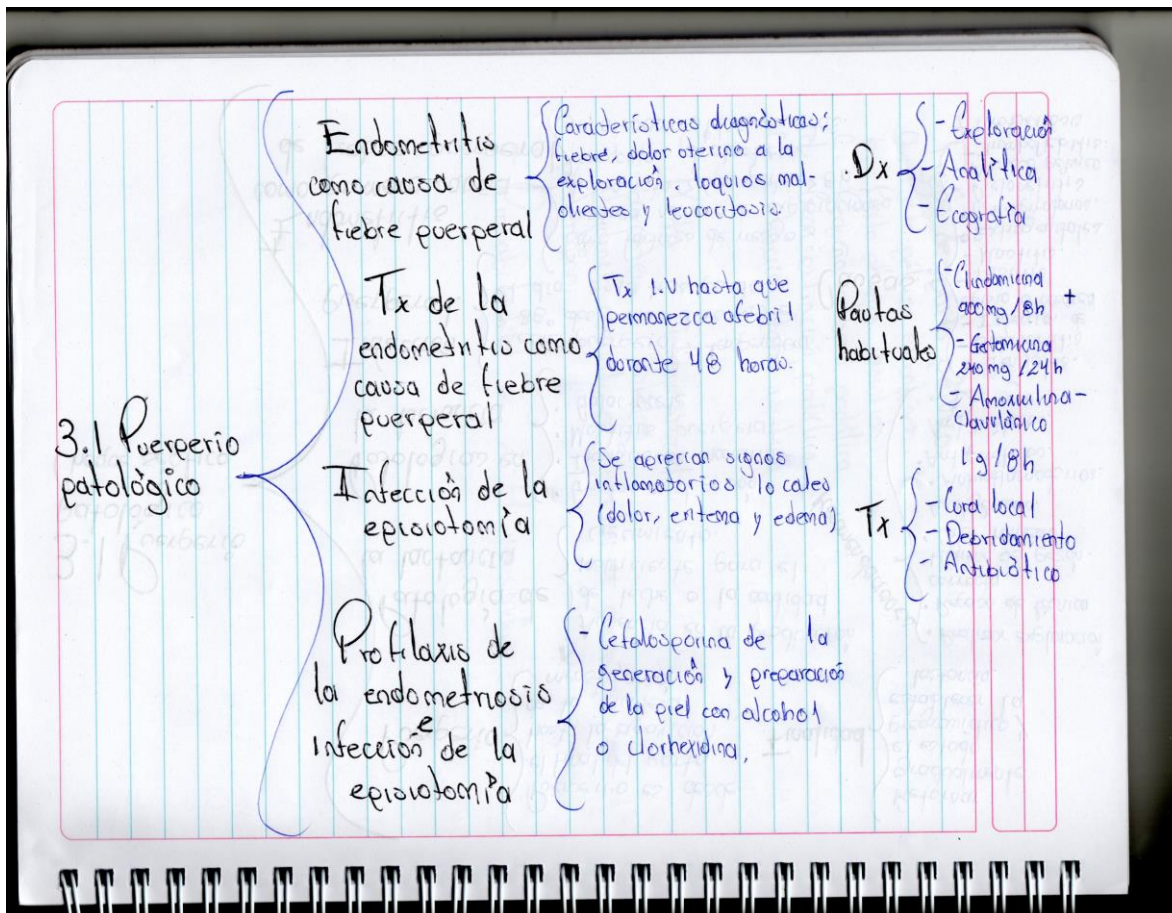 3.1 Puerperio
patológico
Endometritis
como causa de
fiebre puerperal
Características diagnósticas;
fiebre, dolor uterino a la
exploración, loquios mal-
olientes y leucocitosis.
Dx
- Exploración
- Analítica
- Ecografía
Tx de la
endometritis como
causa de fiebre
puerperal
Tx I.V hasta que
permanezca afebril
durante 48 horas.
Pautas
habituales
- Clindamicina
900mg/8h +
- Gentamicina
240mg/24h
- Amoxicilina-
Clavulánico
1g/8h
Infección de la
episiotomía
Se aprecian signos
inflamatorios locales
(dolor, eritema y edema)
Tx
- Cura local
- Debridamiento
- Antibiótico
Profilaxis de
la endometriosis
e
infección de la
episiotomía
- Cefalosporina de 1a
generación y preparación
de la piel con alcohol
o clorhexidina,